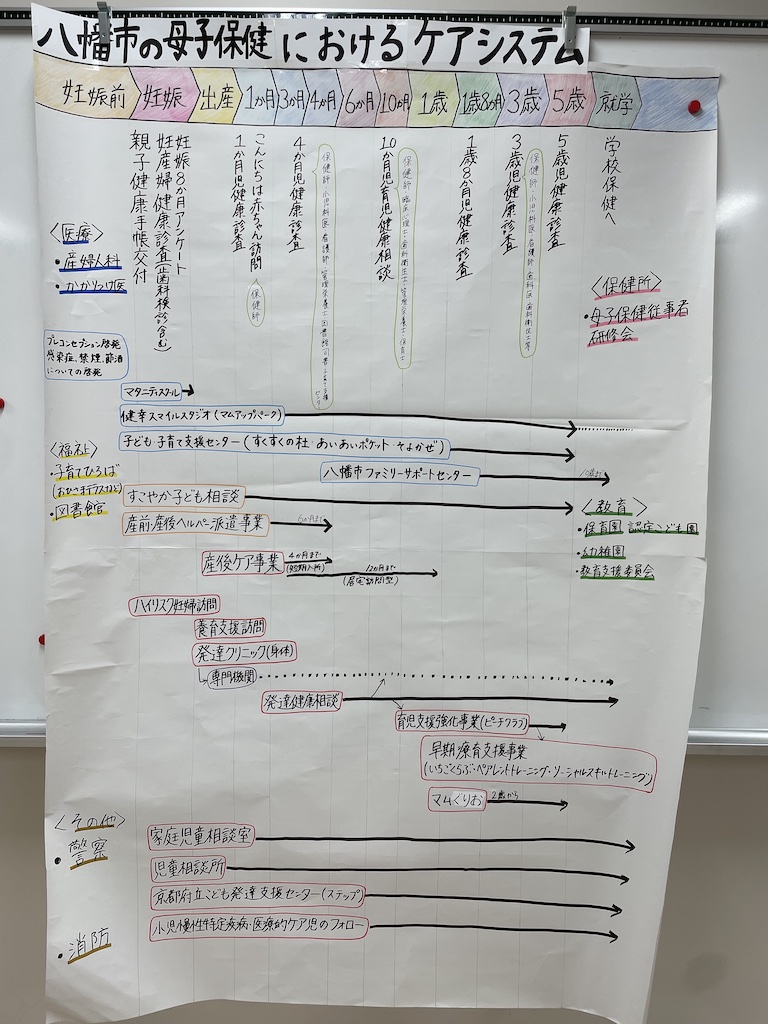 八幡市の母子保健におけるケアシステム
妊娠前 妊娠 出産 1か月 3か月 4か月 6か月 10か月 1歳 1歳8か月 3歳 5歳 就学
親子健康手帳交付
妊産婦健康診査(歯科検診含む)
妊娠8か月アンケート
1か月児健康診査
こんにちは赤ちゃん訪問
保健師
4か月児健康診査
10か月児育児健康相談
1歳8か月児健康診査
3歳児健康診査
5歳児健康診査
学校保健へ
〈医療〉
・産婦人科
・かかりつけ医
〈保健所〉
・母子保健従事者
研修会
プレコンセプション啓発
感染症、禁煙、節酒
についての啓発
マタニティスクール
健幸スマイルスタジオ(マムアップパーク)
子ども・子育て支援センター(すくすくの杜・あいあいポケット・そよかぜ)
八幡市ファミリーサポートセンター
〈福祉〉
・子育てひろば
(おひさまテラスなど)
・図書館
すこやか子ども相談
産前・産後ヘルパー派遣事業
6か月まで
産後ケア事業
4か月まで
(短期入所)
12か月まで
(居宅訪問型)
〈教育〉
・保育園 認定こども園
・幼稚園
・教育支援委員会
ハイリスク妊婦訪問
養育支援訪問
発達クリニック(身体)
専門機関
発達健康相談
育児支援強化事業(ピーチクラブ)
早期療育支援事業
(いちごくらぶ・ペアレントトレーニング・ソーシャルスキルトレーニング)
マムぐりお
2歳から
〈その他〉
・警察
・消防
家庭児童相談室
児童相談所
京都府立こども発達支援センター(ステップ)
小児慢性特定疾病・医療的ケア児のフォロー